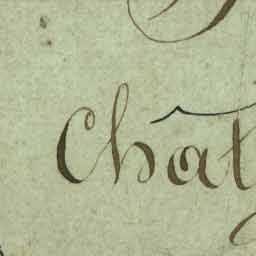 Chât